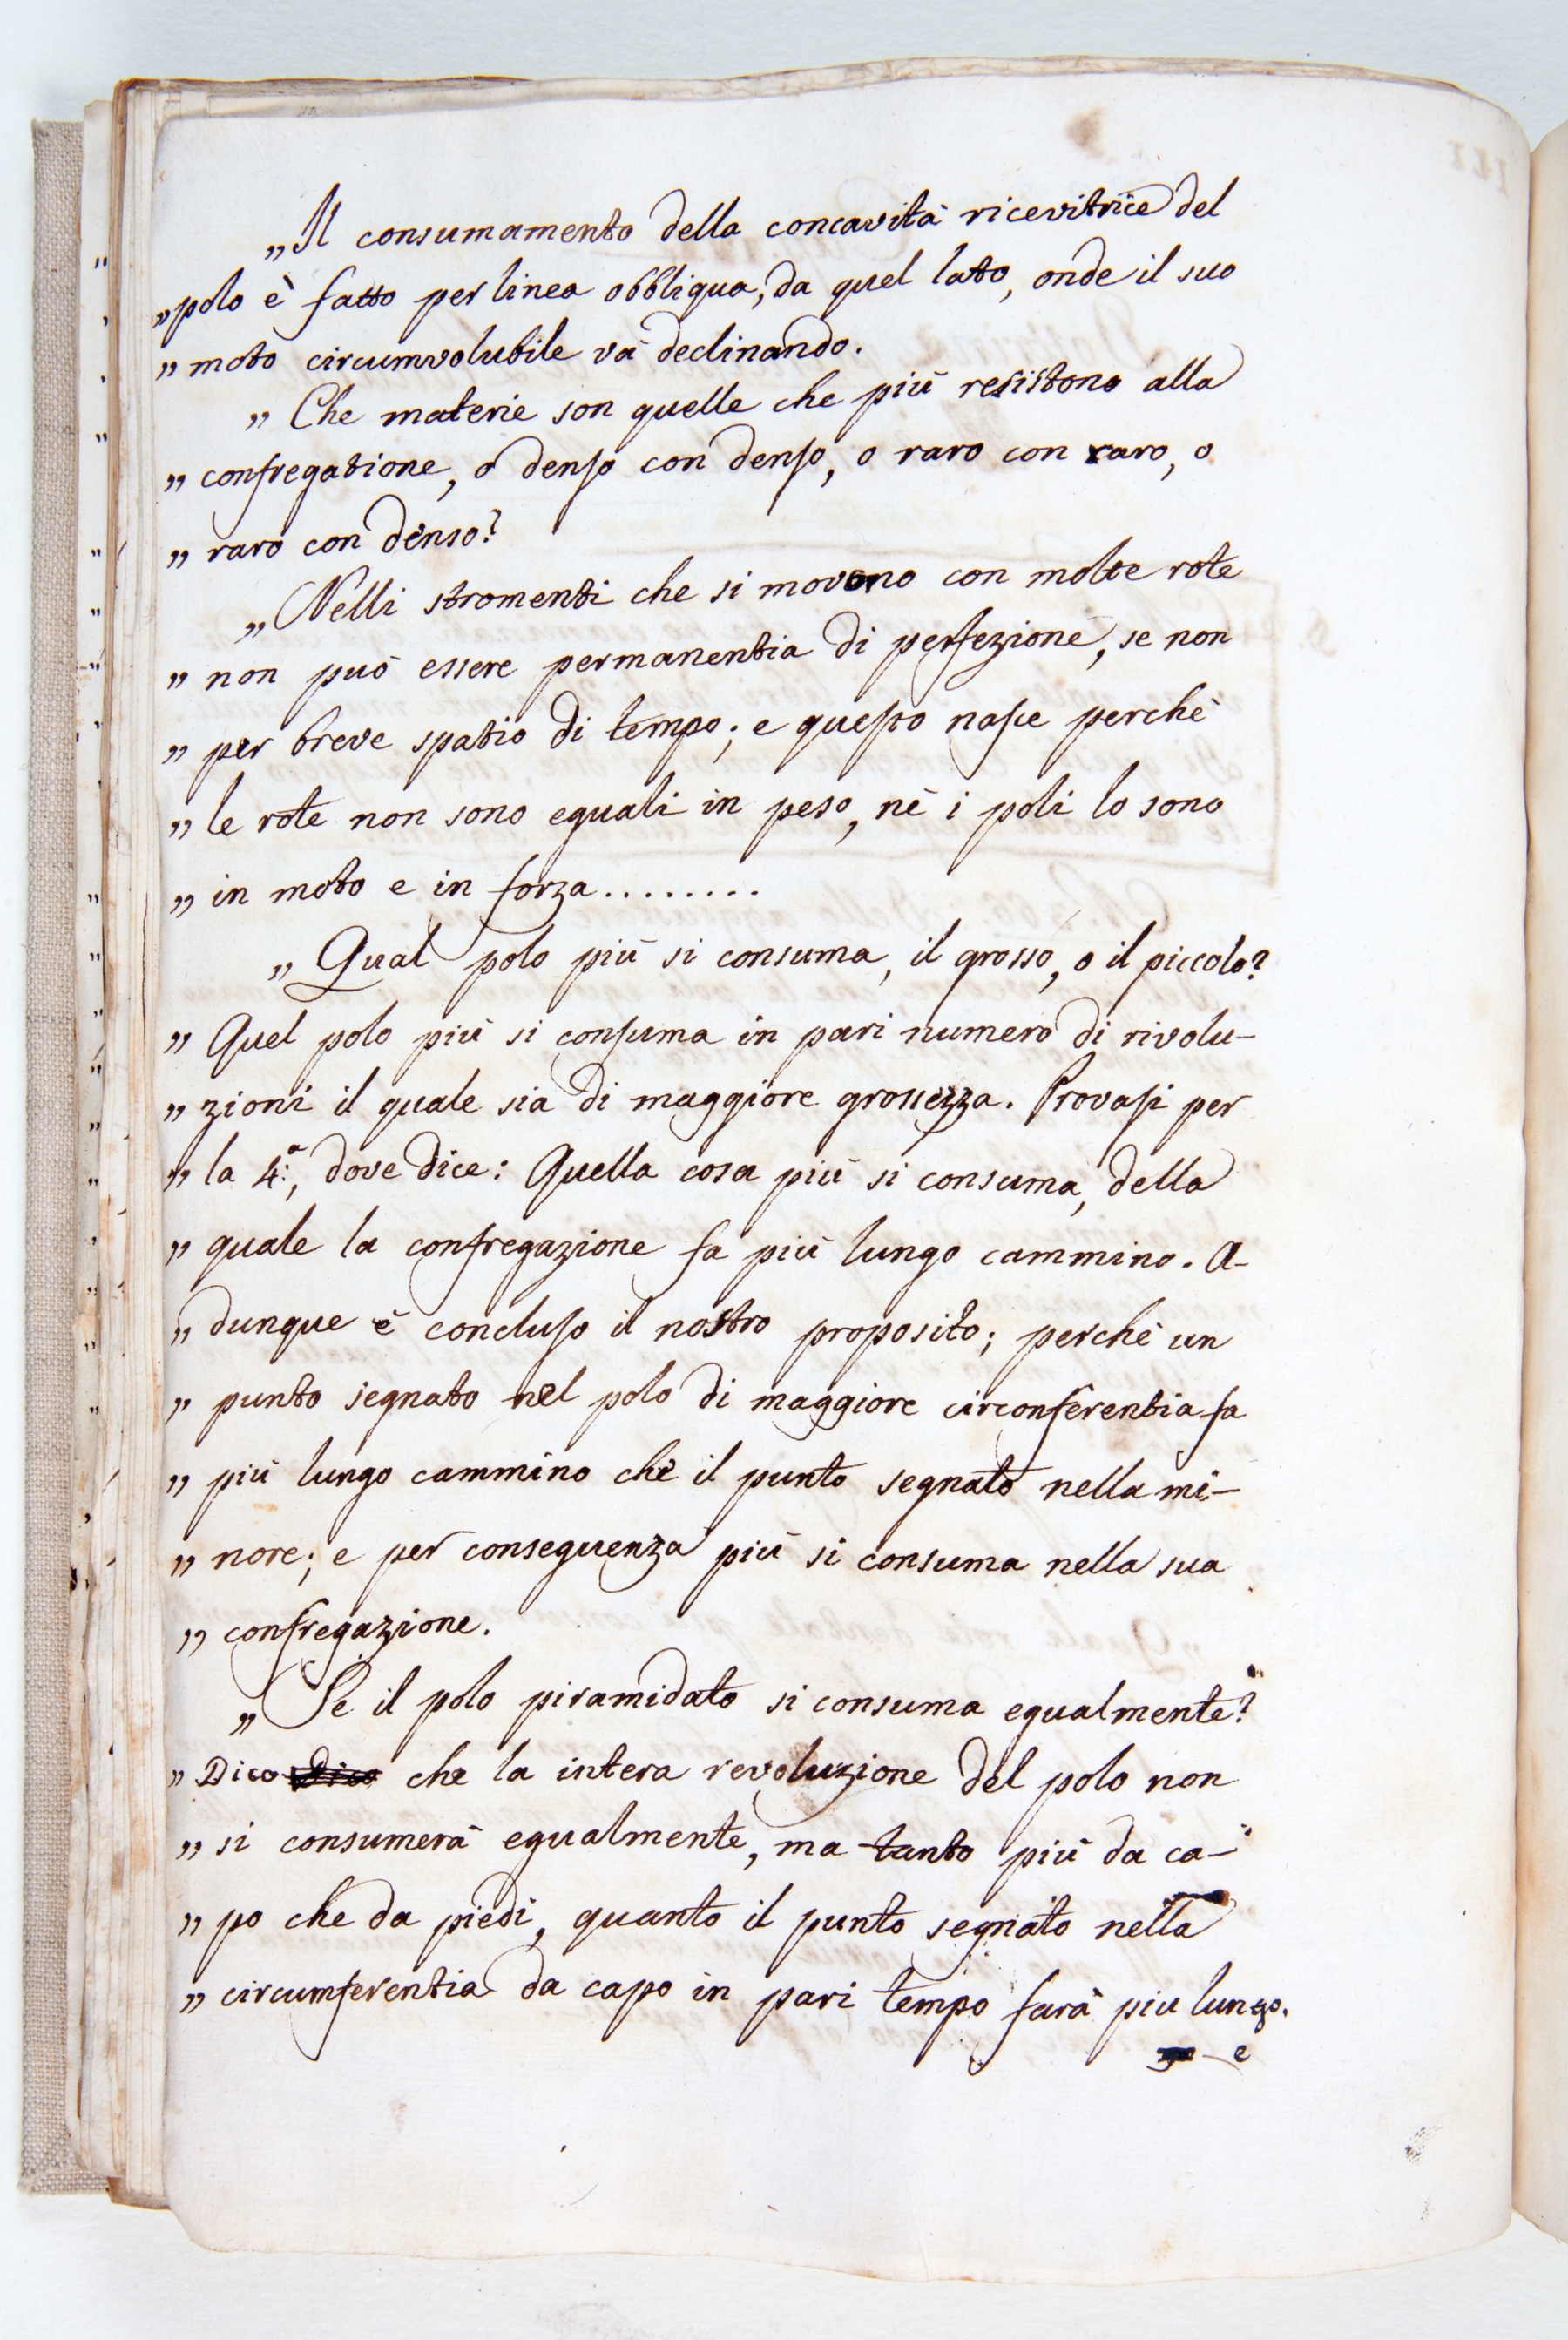 „ Il consumamento della concavità ricevitrice del
„ polo è fatto per linea obbliqua, da quel lato, onde il suo
„ moto circumvolubile và declinando.
„ Che materie son quelle che più resistono alla
„ confregatione, o denso con denso, o raro con raro, o
„ raro con denso?
„ Nelli stromenti che si movono con molte rote
„ non può essere permanentia di perfezione, se non
„ per breve spatio di tempo; e questo nasce perchè
„ le rote non sono eguali in peso, nè i poli lo sono
„ in moto e in forza........
„ Qual polo più si consuma, il grosso, o il piccolo?
„ Quel polo più si consuma in pari numero di rivolu-
„ zioni il quale sia di maggiore grossezza. Provasi per
„ la 4.ª, dove dice: Quella cosa più si consuma, della
„ quale la confregazione fa più lungo cammino. A-
„ dunque è concluso il nostro proposito; perchè un
„ punto segnato nel polo di maggiore circonferentia fa
„ più lungo cammino che il punto segnato nella mi-
„ nore; e per conseguenza più si consuma nella sua
„ confregazione.
„ Se il polo piramidato si consuma egualmente?
„ Dico dico che la intera revoluzione del polo non
„ si consumerà egualmente, ma tanto più da ca-
„ po che da piedi, quanto il punto segnato nella
„ circumferentia da capo in pari tempo farà più lungo.
e